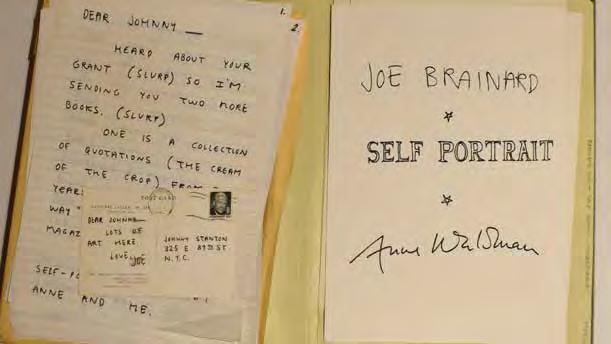 1.
2.
DEAR JOHNNY —
HEARD ABOUT YOUR
GRANT (SLURP) SO I'M
SENDING YOU TWO MORE
BOOKS. (SLURP)
ONE IS A COLLECTION
OF QUOTATIONS (THE CREAM
OF THE CROP) FROM
YEAR
WAY
MAGAZ
SELF-PO
ANNE AND ME.
POST CARD
DEAR JOHNNY
LOTS OF
ART HERE.
LOVE, JOE
JOHNNY STANTON
325 E. 89TH ST.
N.Y.C.
JOE BRAINARD
SELF PORTRAIT
Anne Waldman